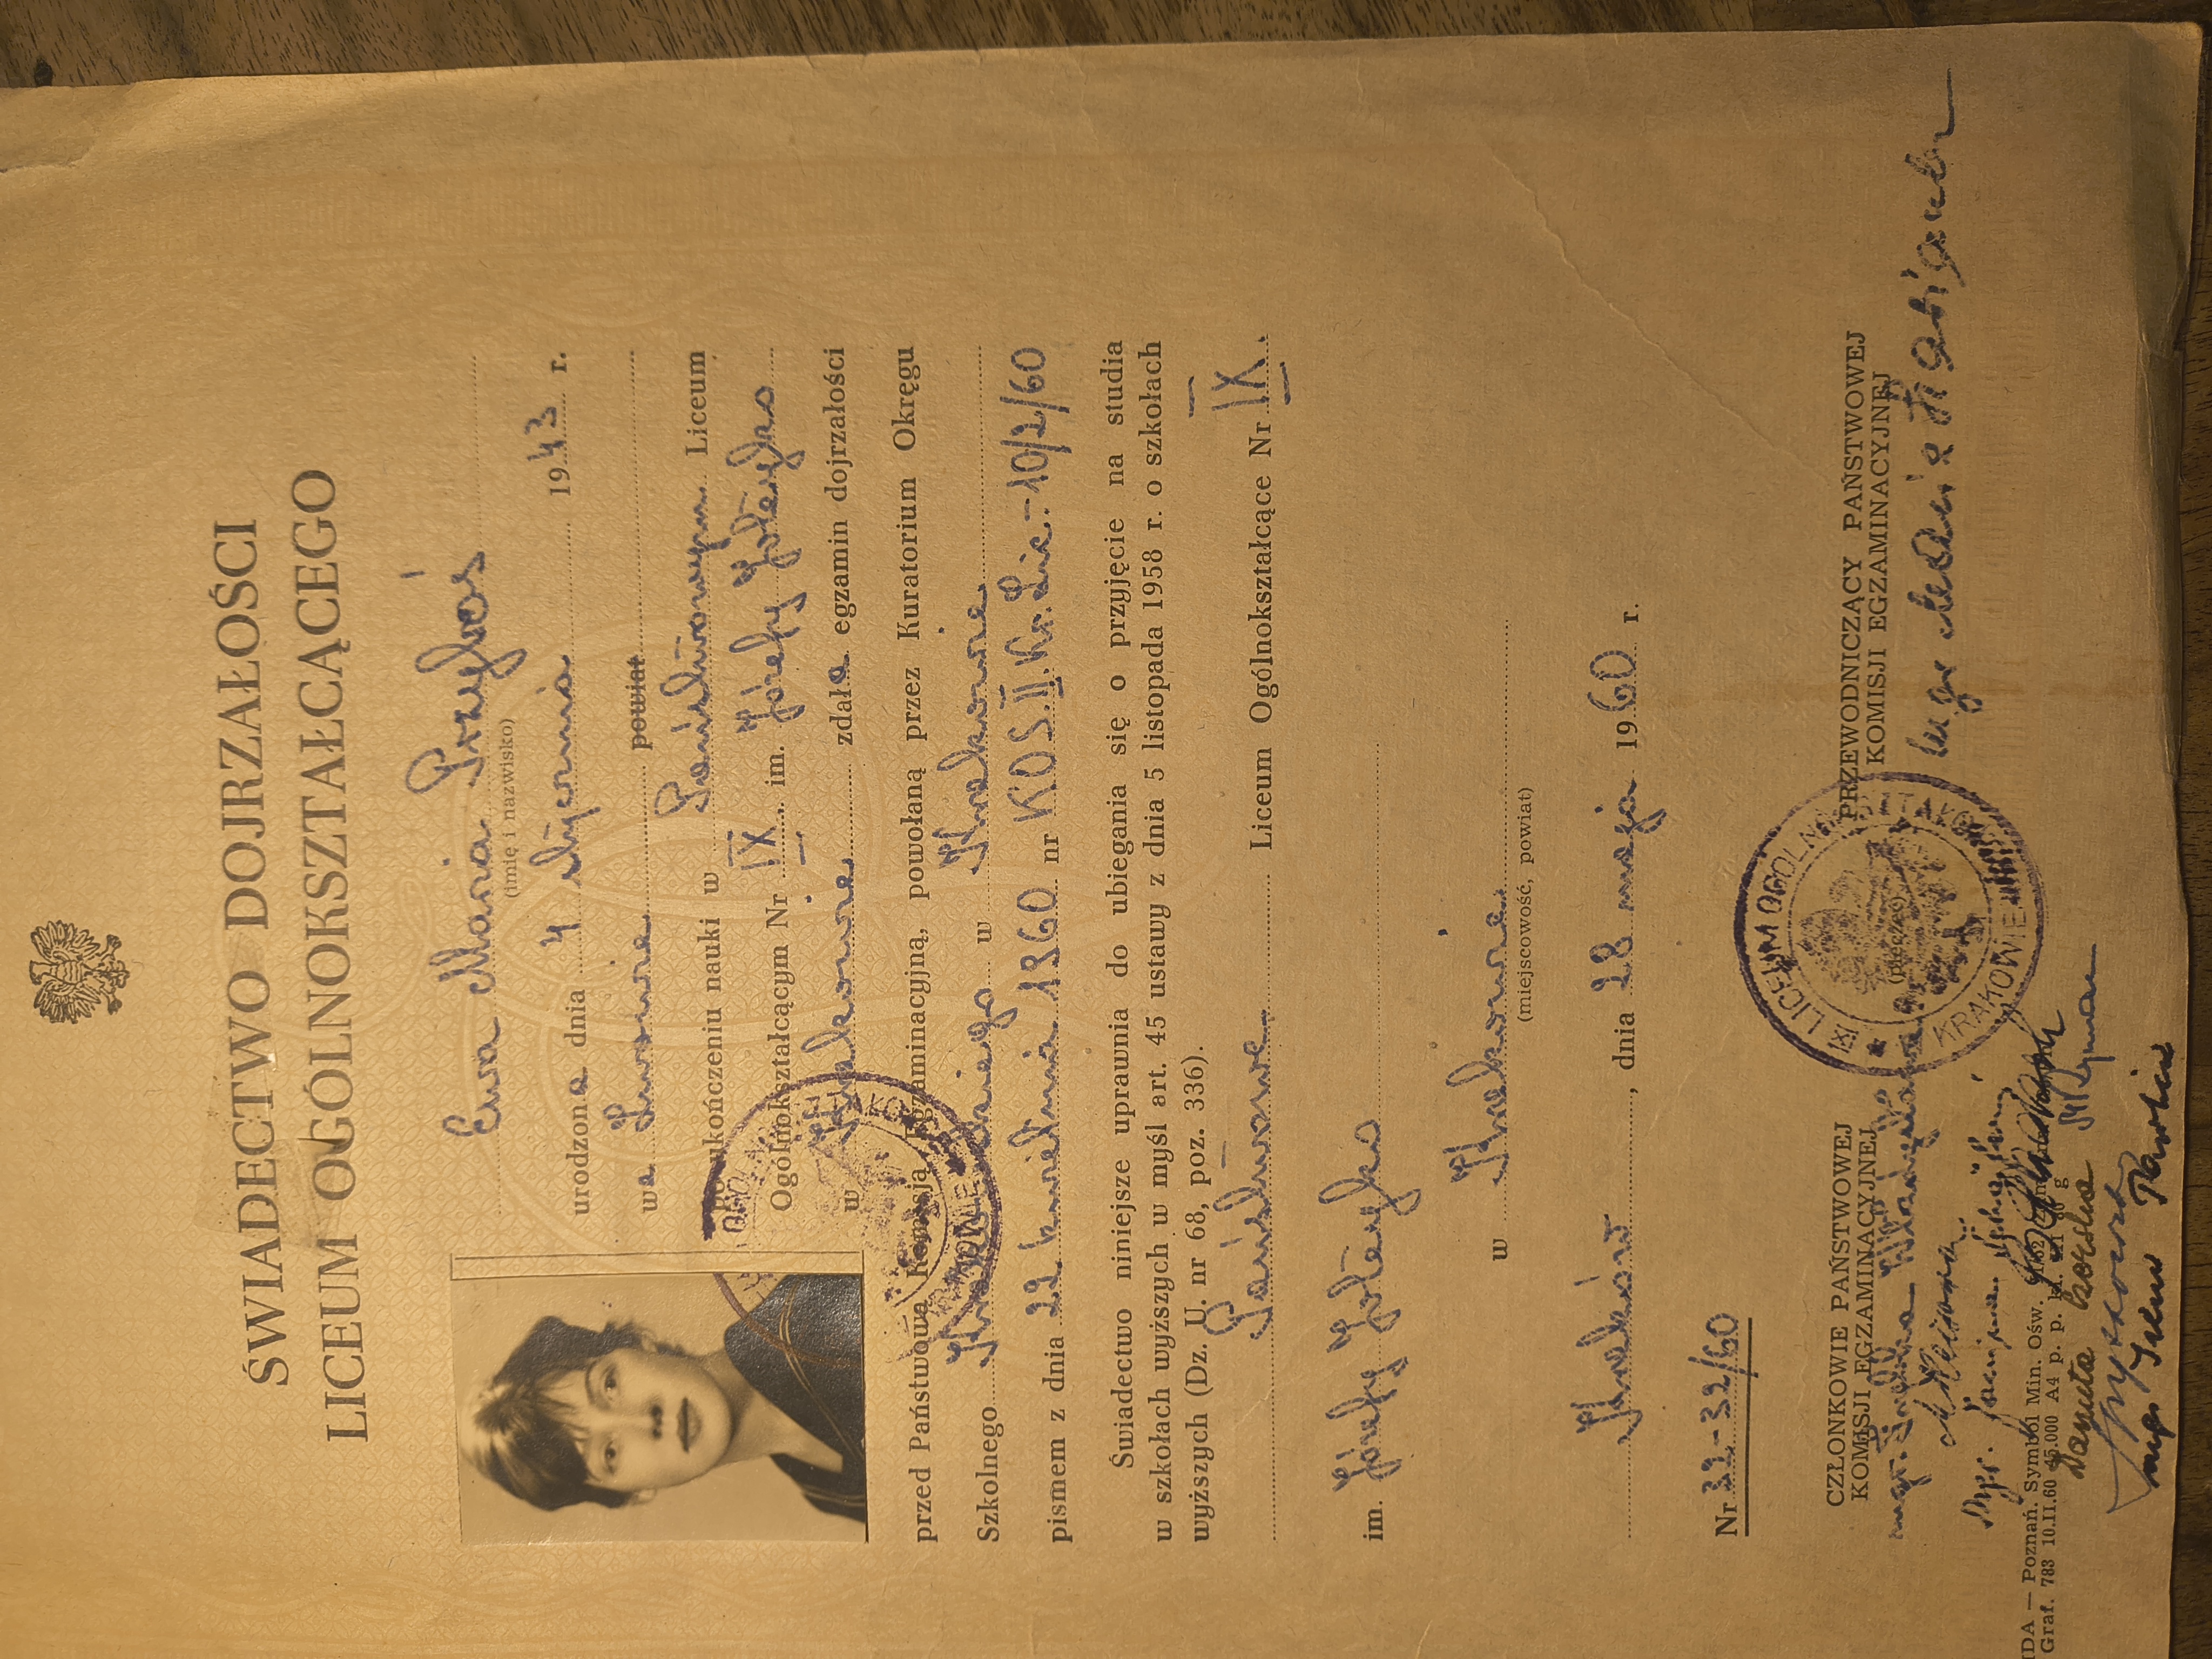 ŚWIADECTWO DOJRZAŁOŚCI
LICEUM OGÓLNOKSZTAŁCĄCEGO
Ewa Maria Przyboś
(imię i nazwisko)
urodzona dnia 4 stycznia 1943 r.
we Lwowie powiat
po ukończeniu nauki w Państwowym Liceum
Ogólnokształcącym Nr IX im. Józefy Joteyko
w Krakowie zdała egzamin dojrzałości
przed Państwową Komisją Egzaminacyjną, powołaną przez Kuratorium Okręgu
Szkolnego Krakowskiego w Krakowie
pismem z dnia 22 kwietnia 1960 nr KOS.II.Kr.Lic.-10/2/60
Świadectwo niniejsze uprawnia do ubiegania się o przyjęcie na studia
w szkołach wyższych w myśl art. 45 ustawy z dnia 5 listopada 1958 r. o szkołach
wyższych (Dz. U. nr 68, poz. 336).
Państwowe Liceum Ogólnokształcące Nr IX.
im. Józefy Joteyko
w Krakowie
(miejscowość, powiat)
Kraków, dnia 28 maja 1960 r.
Nr 32-32/60
CZŁONKOWIE PAŃSTWOWEJ
KOMISJI EGZAMINACYJNEJ
(pieczęć)
IX LICEUM OGÓLNO
KRAKOWIE
PRZEWODNICZĄCY PAŃSTWOWEJ
KOMISJI EGZAMINACYJNEJ
mgr Maria
mgr
Danuta
mgr Irena
IDA — Poznań. Symbol Min. Ośw.
Graf. 783 10.II.60 45.000 A4 p. p.